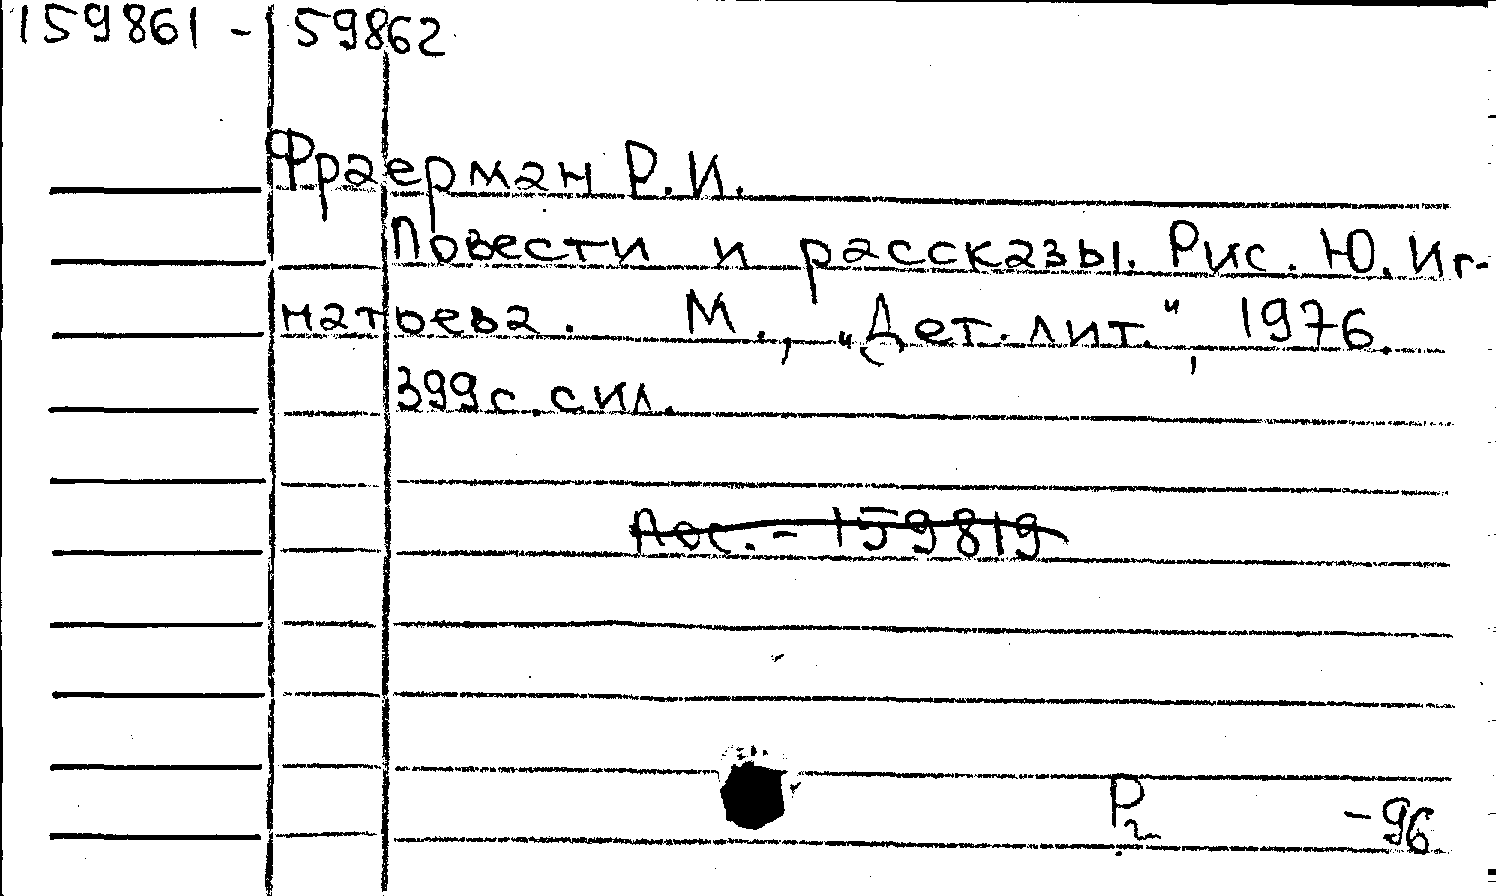 159861 - 159862
Фраерман Р.И.
Повести и рассказы. Рис. Ю. Иг-
натьева. М., „Дет. лит.", 1976.
399 с. с ил.
159819
Р2 -96